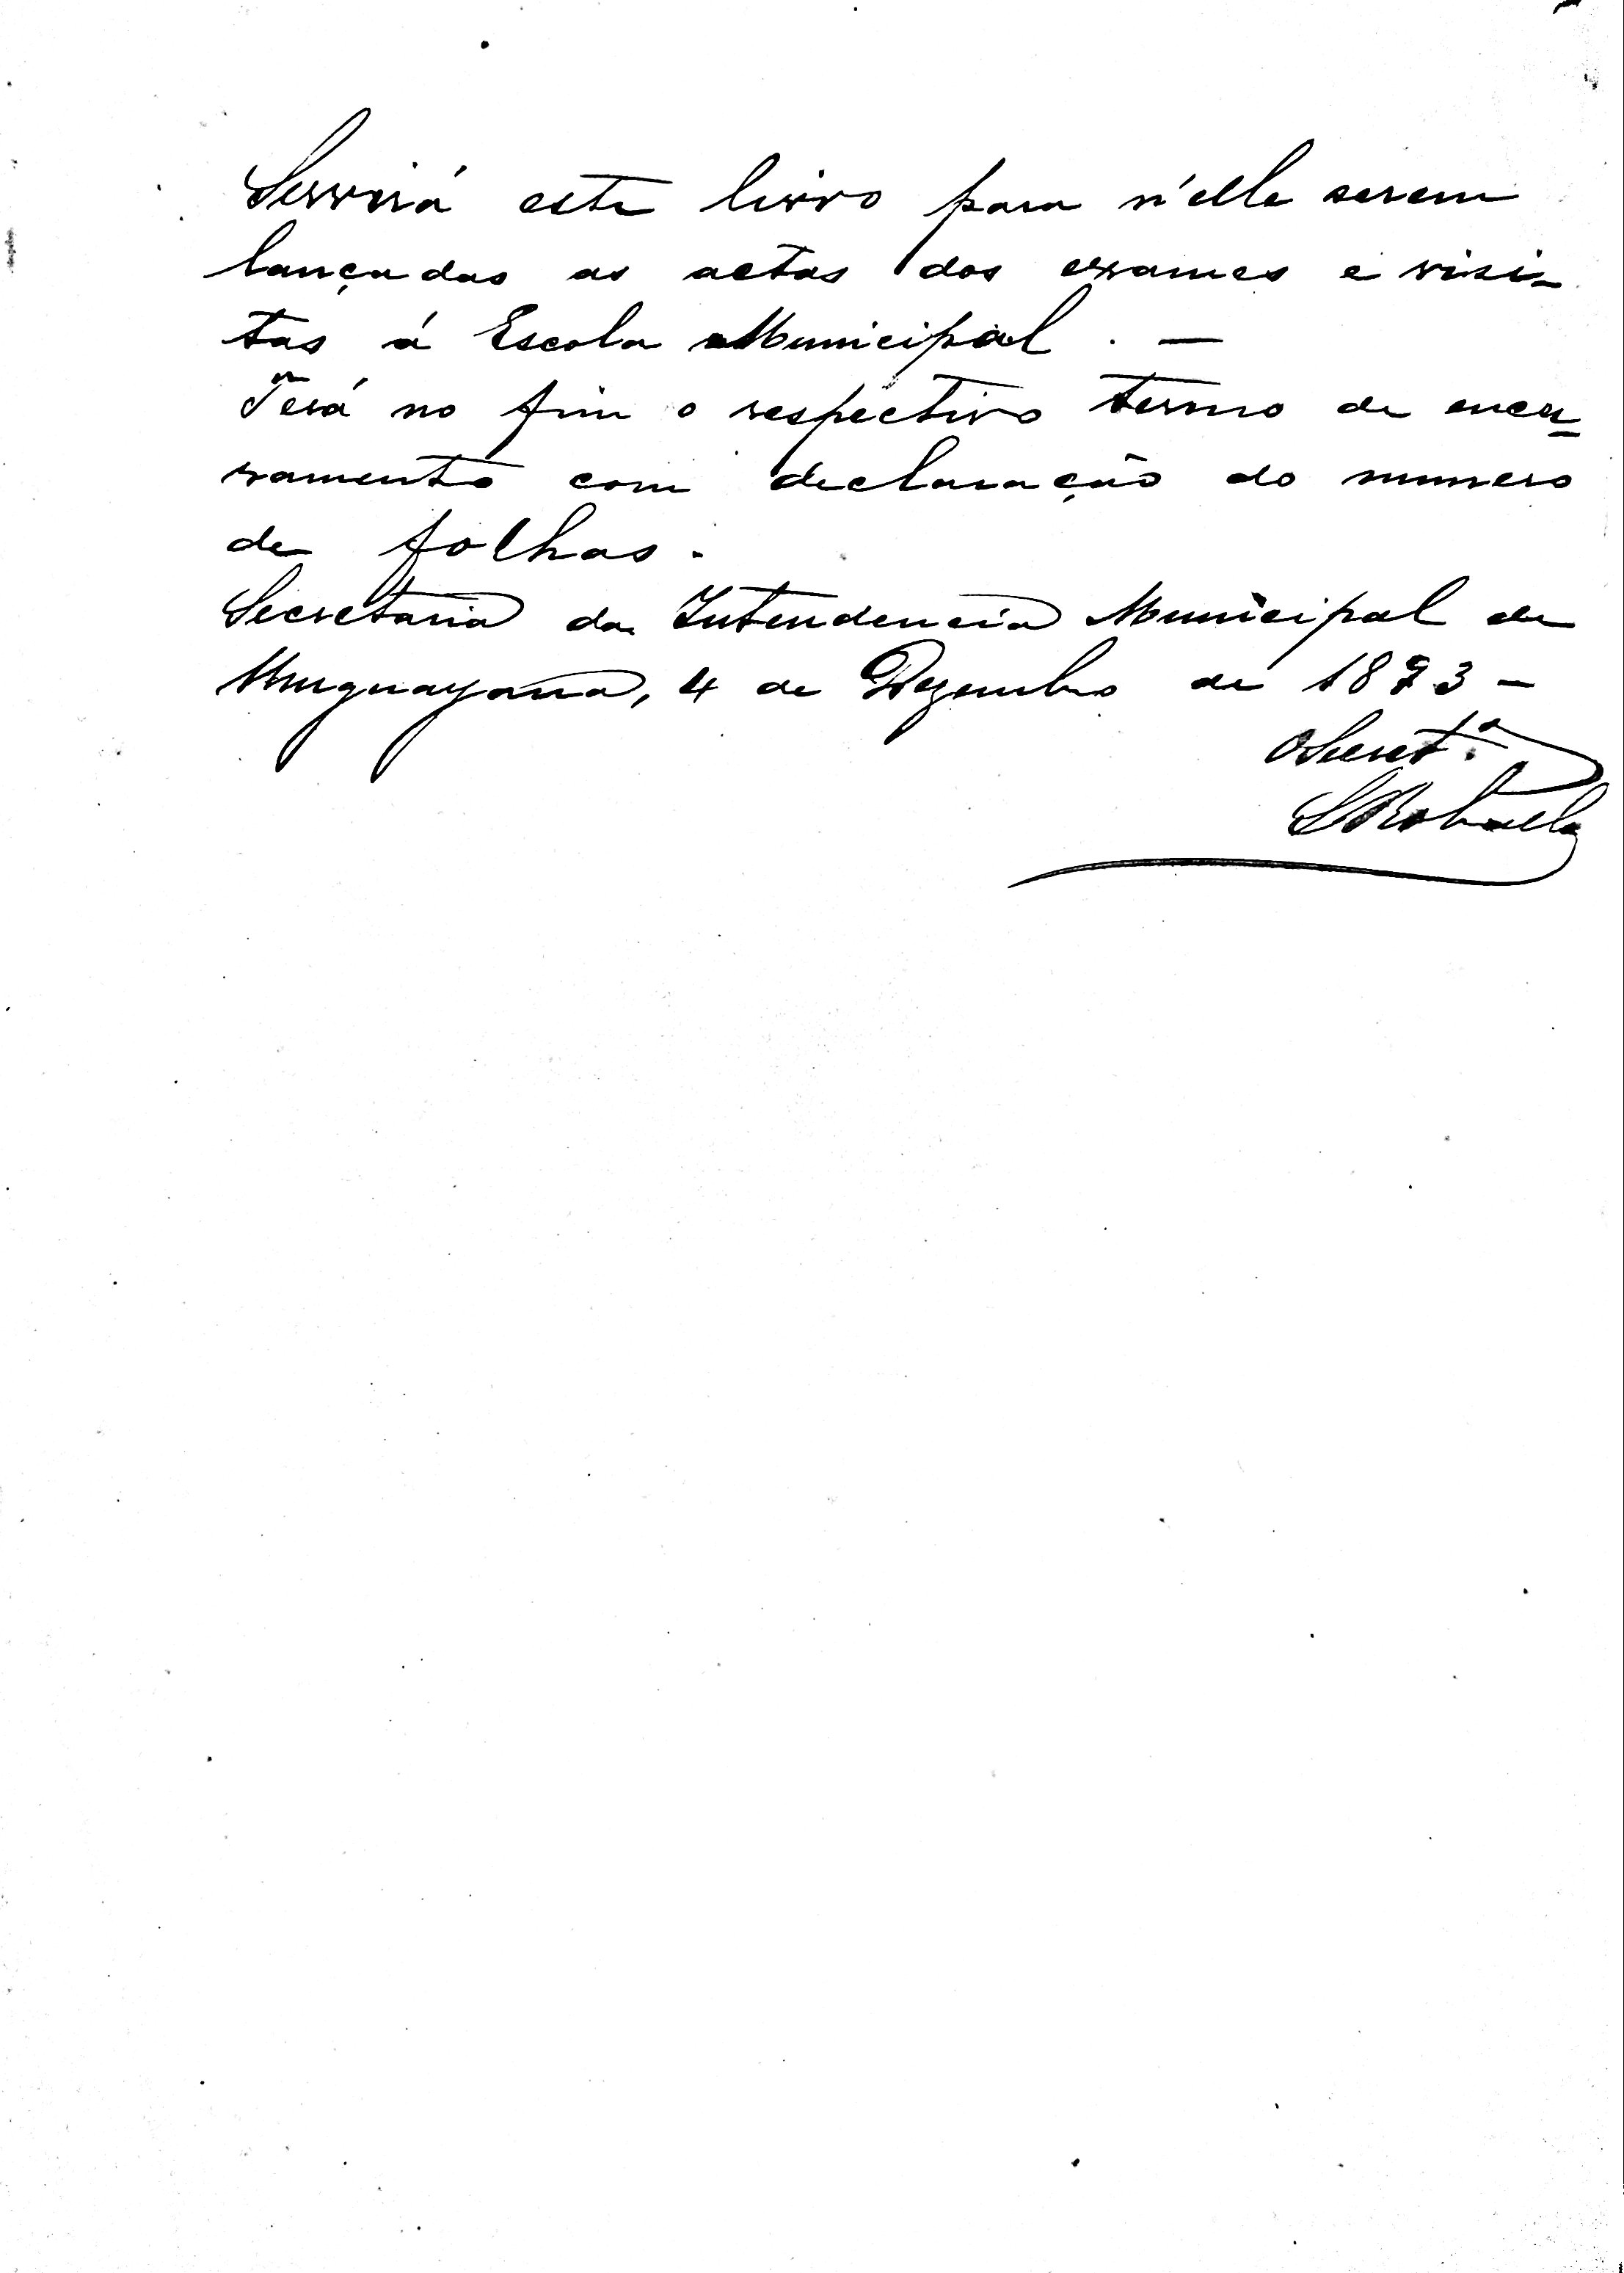 Servirá este livro para n'elle serem
lançadas as actas dos exames e visi-
tas á Escola Municipal. —
Terá no fim o respectivo termo de encer-
ramento com declaração do numero
de folhas.
Secretaria da Intendencia Municipal de
Uruguayana, 4 de Dezembro de 1893 —
O Secretº